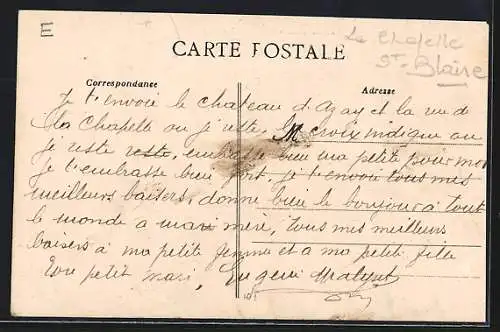 E
La Chapelle
St-Blaise
CARTE POSTALE
Correspondance
Adresse
Je t'envoie le chateau d'Azay et la vue de
la Chapelle ou je reste, la croix indique ou
je reste reste, embrasse bien ma petite pour moi
je t'embrasse bien fort, je t'envoie tous mes
meilleurs baisers, donne bien le bonjour à tout
le monde a mari mère, tous mes meilleurs
baisers à ma petite femme et a ma petit fille
ton petit mari, Eugene